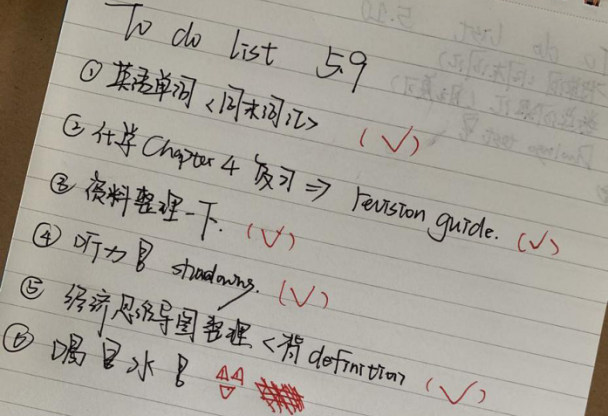 To do list 5.9
① 英语单词 <问末词汇> (✓)
② 化学 Chapter 4 复习 ⇒ revision guide. (✓)
③ 资料整理一下. (✓)
④ 听力 shadowing. (✓)
⑤ 经济思维导图整理 <背 definition> (✓)
⑥ 喝 水